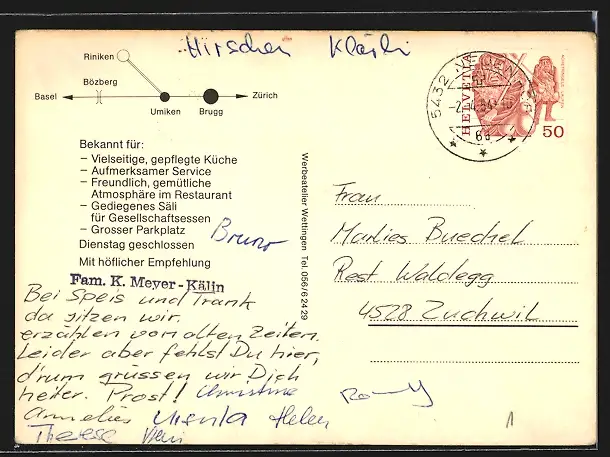 Hirschen Klärli
Riniken
Bözberg
Basel
Zürich
Umiken
Brugg
Bekannt für:
– Vielseitige, gepflegte Küche
– Aufmerksamer Service
– Freundlich, gemütliche
Atmosphäre im Restaurant
– Gediegenes Säli
für Gesellschaftsessen
– Grosser Parkplatz
Dienstag geschlossen
Mit höflicher Empfehlung
Fam. K. Meyer-Kälin
Bruno
Bei Speis und Trank
da sitzen wir,
erzählen von alten Zeiten.
Leider aber fehlst Du hier,
d'rum grüssen wir Dich
heiter. Prost! Christine
Annelies Ursula Helen
Therese
Werbeatelier Wettingen Tel. 056/6 24 29
HELVETIA
50
5432
Frau
Marlies Buechel
Rest Waldegg
4528 Zuchwil
1